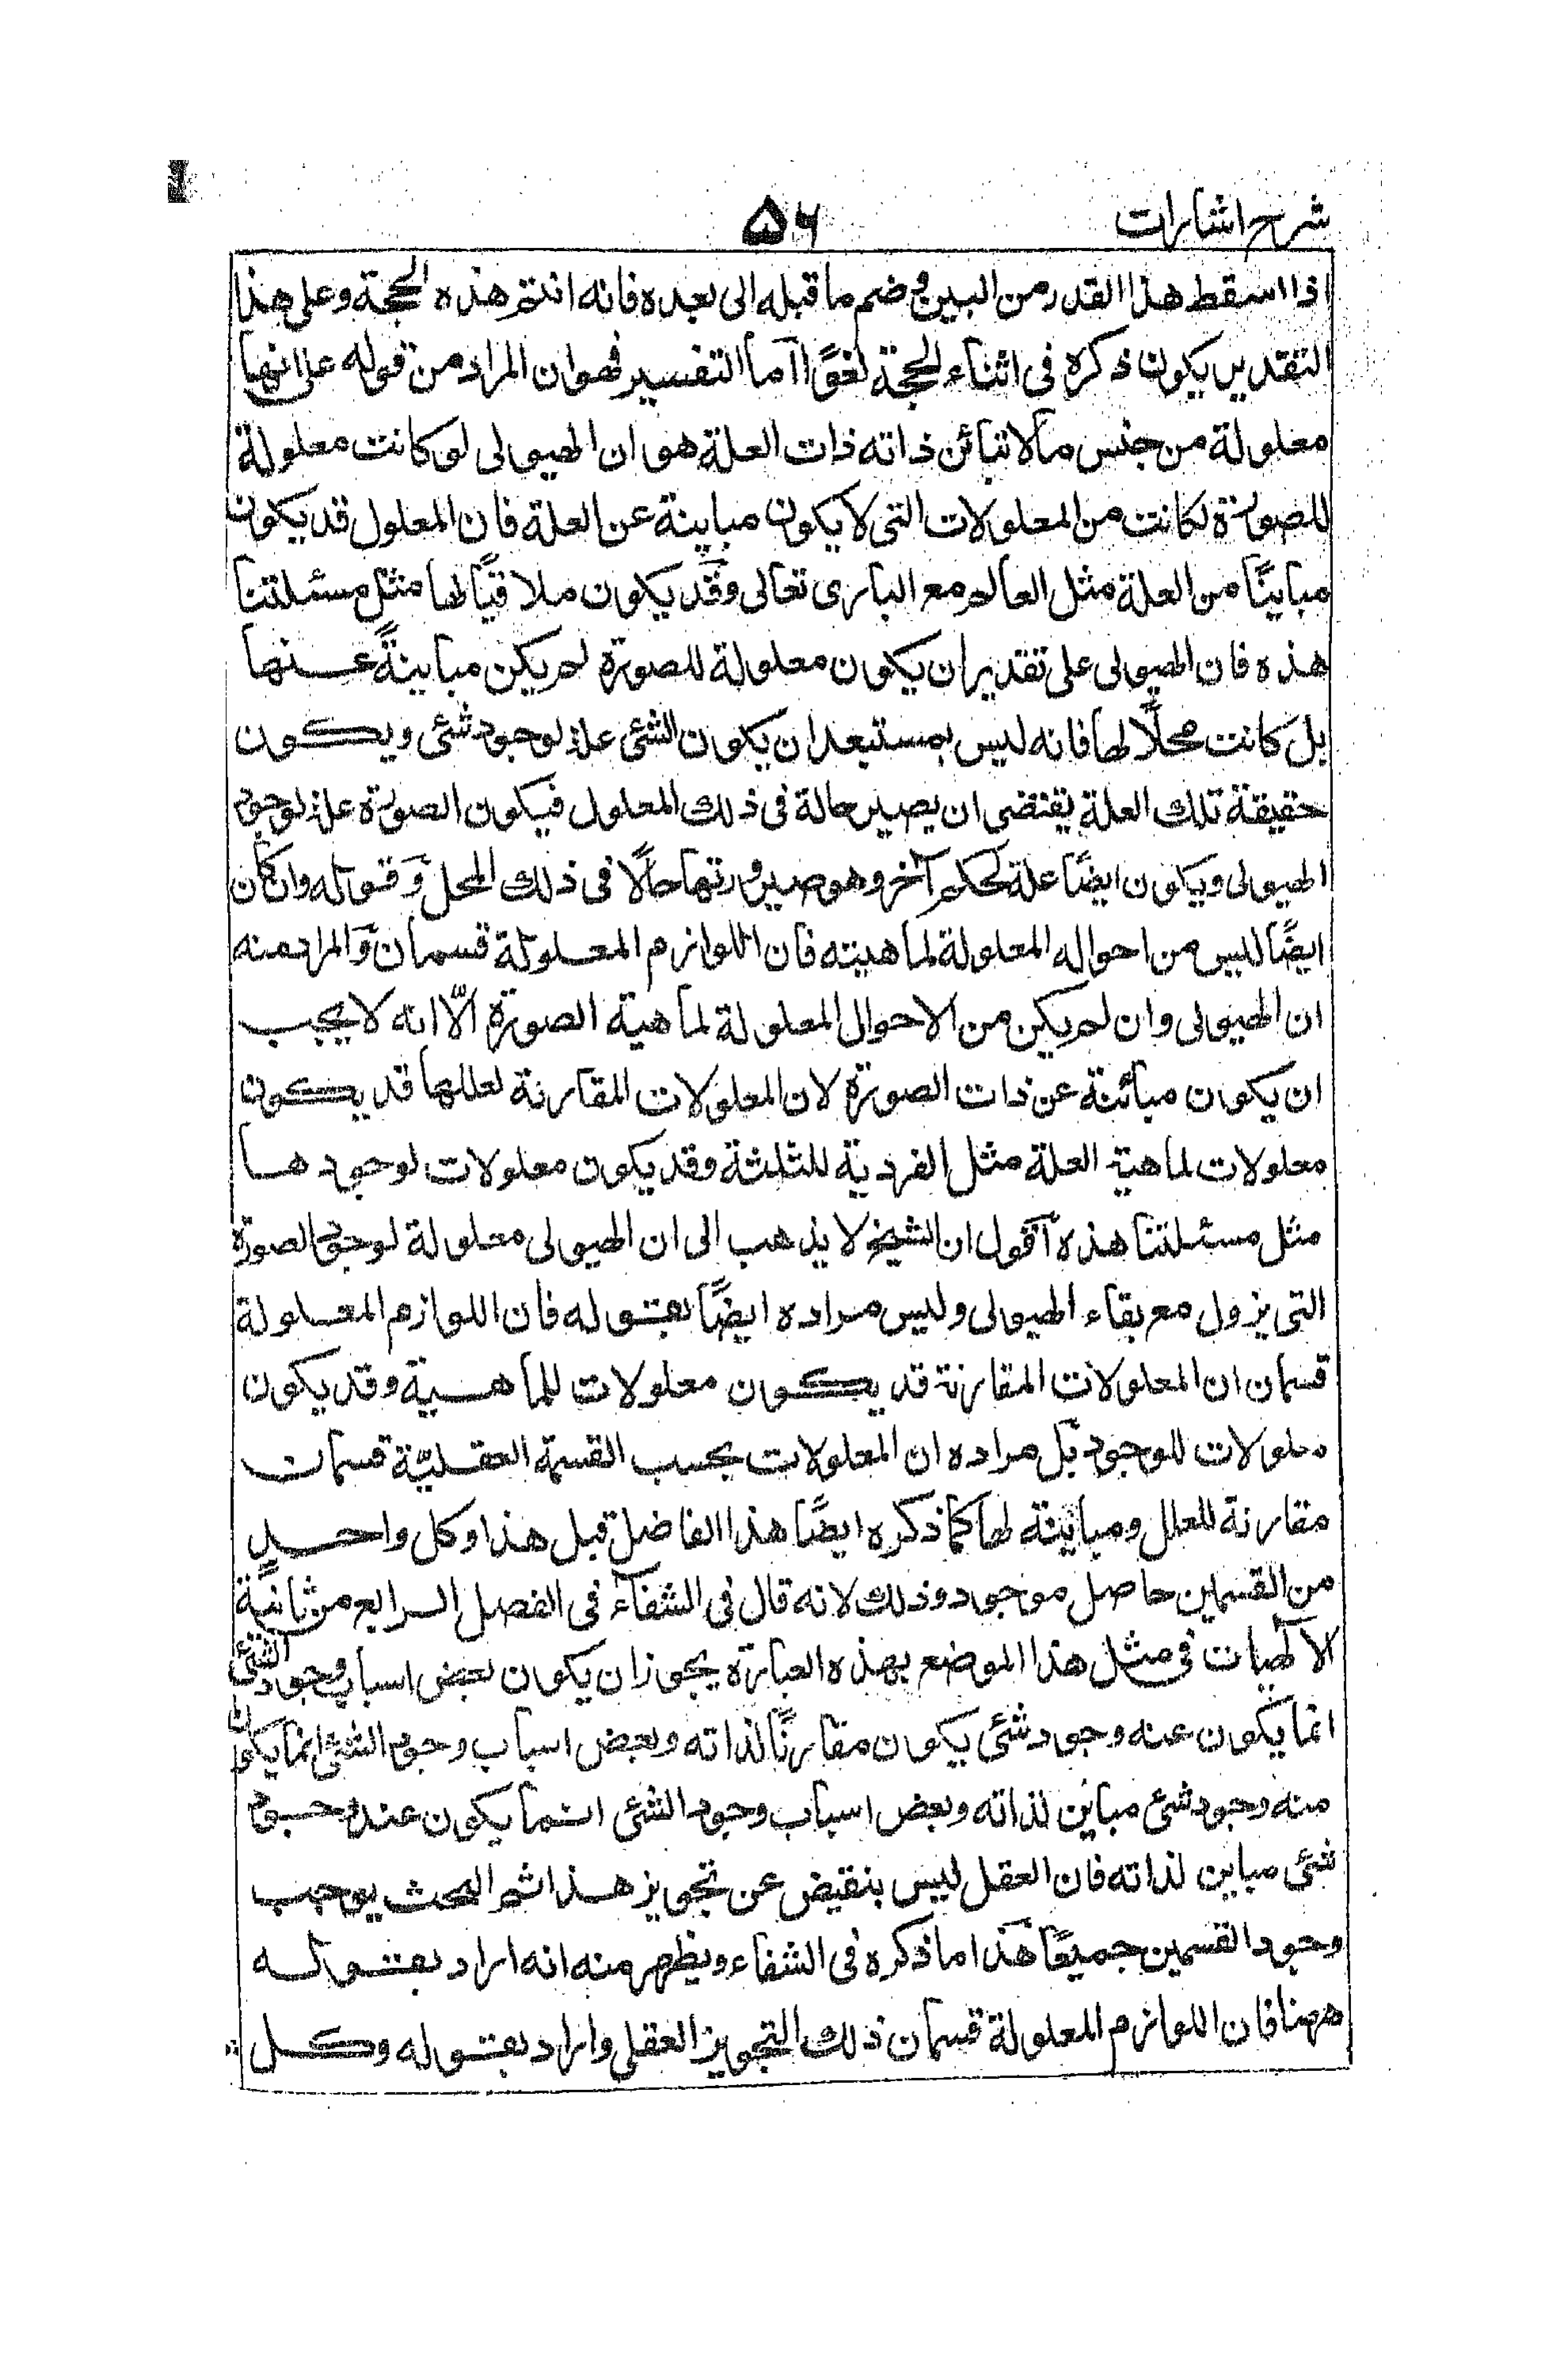 شرح اشارات
۵۶
اذا اسقط هذا القدر من البين و ضم ما قبله الى بعده فانه انتم هذه الحجة وعلى هذا
التقدير يكون ذكره فى اثناء الحجة لغوًا آما التفسير فهو ان المراد من قوله على انها
معلولة من جنس مالا تبائن ذاته ذات العلة هو ان الهيولى لو كانت معلولة
للصورة لكانت من المعلولات التى لا يكون مباينة عن العلة فان المعلول قد يكون
مباينًا من العلة مثل العالم مع البارى تعالى وقد يكون ملاقيًا لها مثل مسئلتنا
هذه فان الهيولى على تقدير ان يكون معلولة للصورة لم يكن مباينةً عنها
بل كانت محلًا لها فانه ليس بمستبعد ان يكون الشئى علة لوجود شئى ويكون
حقيقة تلك العلة يقتضى ان يصير حالة فى ذلك المعلول فيكون الصورة علة لوجود
الهيولى ويكون ايضًا علة لحكم آخر وهو صيرورتها حالًا فى ذلك المحل وقوله وان كان
ايضًا ليس من احواله المعلولة لماهيته فان اللوازم المعلولة قسمان والمراد منه
ان الهيولى وان لم يكن من الاحوال المعلولة لماهية الصورة الّا انه لا يجب
ان يكون مبائنة عن ذات الصورة لان المعلولات المقارنة لعللها قد يكون
معلولات لماهية العلة مثل الفردية للثلثة وقد يكون معلولات لوجودها
مثل مسئلتنا هذه آقول ان الشيخ لا يذهب الى ان الهيولى معلولة لوجود الصورة
التى يزول مع بقاء الهيولى وليس مراده ايضًا بقوله فان اللوازم المعلولة
قسمان ان المعلولات المقارنة قد يكون معلولات للماهية وقد يكون
معلولات للوجود بل مراده ان المعلولات بحسب القسمة العقليّة قسمان
مقارنة للعلل ومباينة لها كما ذكره ايضًا هذا الفاضل قبل هذا وكل واحد
من القسمين حاصل موجود وذلك لانه قال فى الشفاء فى الفصل الرابع من ثانية
الالهيات فى مثل هذا الموضع بهذه العبارة يجوز ان يكون بعض اسباب وجود الشئى
انما يكون عنه وجود شئى يكون مقارنًا لذاته وبعض اسباب وجود الشئى انما يكون
منه وجود شئ مباين لذاته وبعض اسباب وجود الشئى انما يكون عنه وجود
شئى مباين لذاته فان العقل ليس بنقيض عن تجويز هذا ثم البحث يوجب
وجود القسمين جميعًا هذا ما ذكره فى الشفاء ويظهر منه انه اراد بقوله
ههنا فان اللوازم المعلولة قسمان ذلك التجويز العقلى واراد بقوله وكل